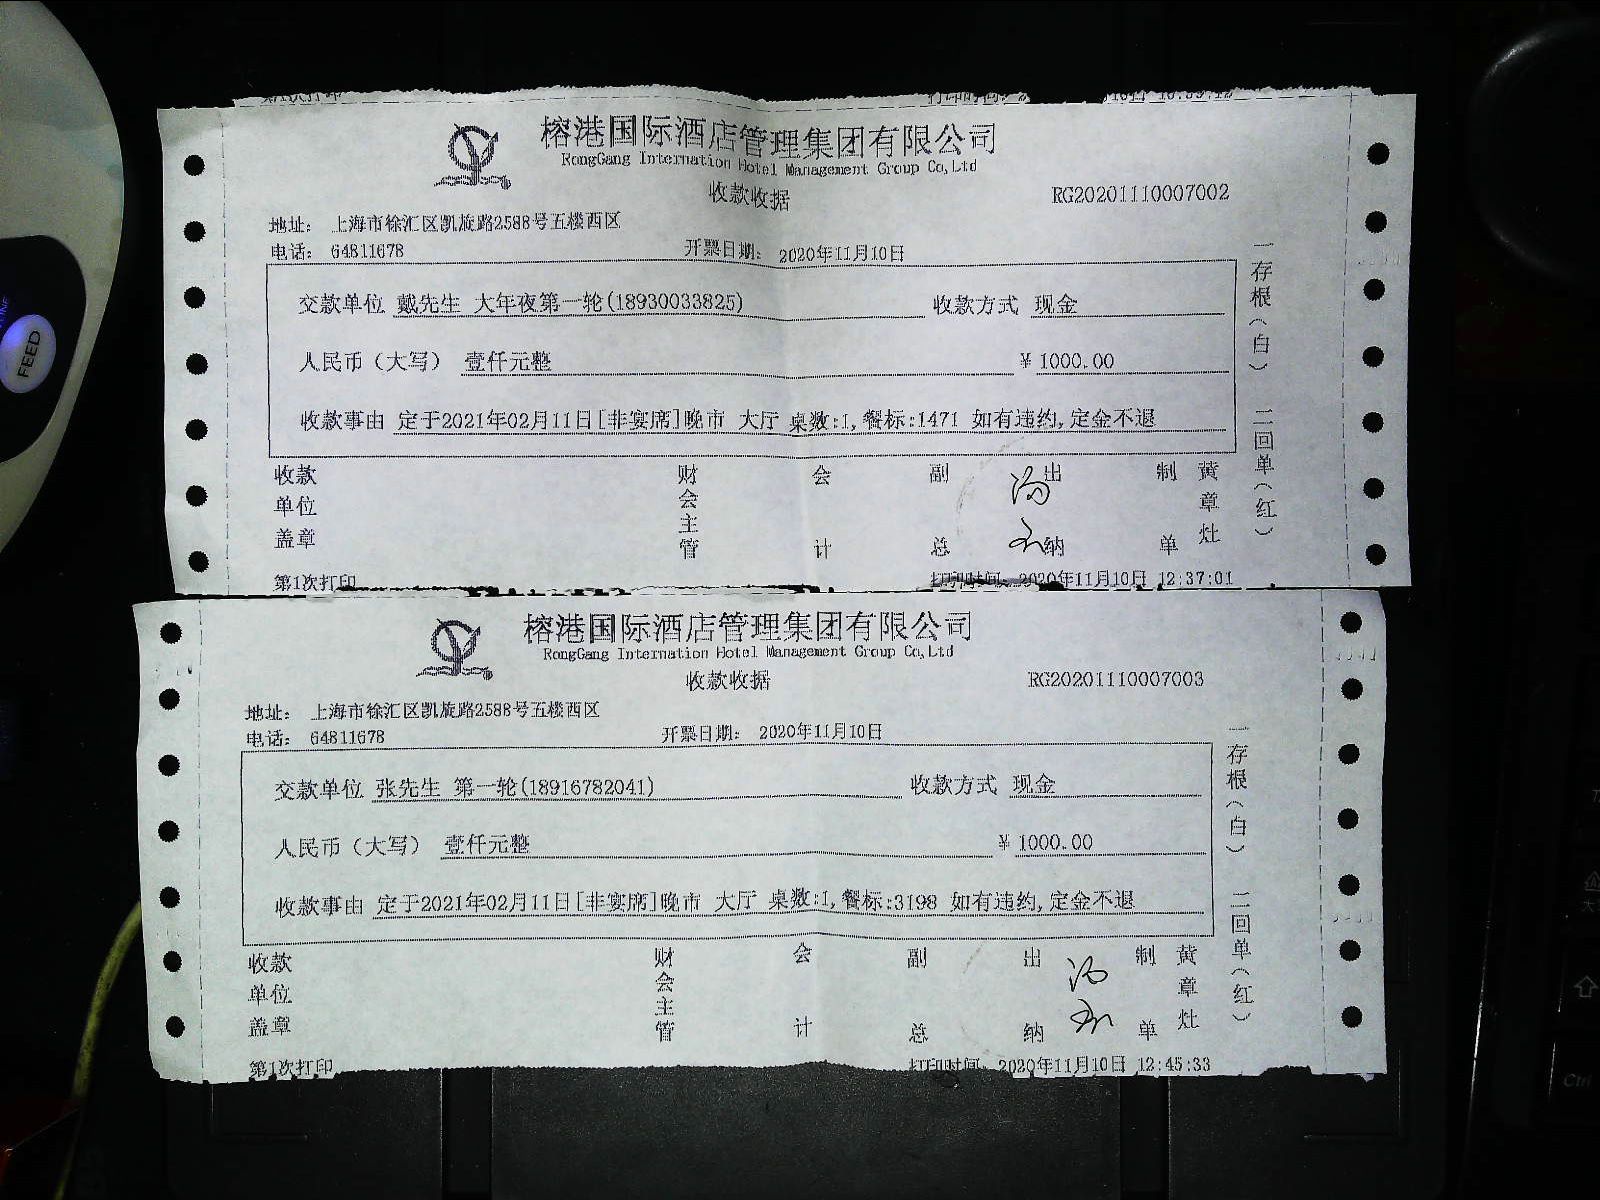 榕港国际酒店管理集团有限公司
RongGang Internation Hotel Management Group Co,Ltd
收款收据
RG20201110007002
地址： 上海市徐汇区凯旋路2588号五楼西区
电话： 64811678 开票日期： 2020年11月10日
交款单位 戴先生 大年夜第一轮(18930033825) 收款方式 现金
人民币（大写） 壹仟元整 ¥ 1000.00
收款事由 定于2021年02月11日[非宴席]晚市 大厅 桌数:1,餐标:1471 如有违约,定金不退
收款单位盖章 财会主管 会计 副总 出纳 制单 黄章灶
一存根（白） 二回单（红）
第1次打印 打印时间：2020年11月10日 12:37:01
榕港国际酒店管理集团有限公司
RongGang Internation Hotel Management Group Co,Ltd
收款收据
RG20201110007003
地址： 上海市徐汇区凯旋路2588号五楼西区
电话： 64811678 开票日期： 2020年11月10日
交款单位 张先生 第一轮(18916782041) 收款方式 现金
人民币（大写） 壹仟元整 ¥ 1000.00
收款事由 定于2021年02月11日[非宴席]晚市 大厅 桌数:1,餐标:3198 如有违约,定金不退
收款单位盖章 财会主管 会计 副总 出纳 制单 黄章灶
一存根（白） 二回单（红）
第1次打印 打印时间：2020年11月10日 12:45:33
FEED
Ctrl